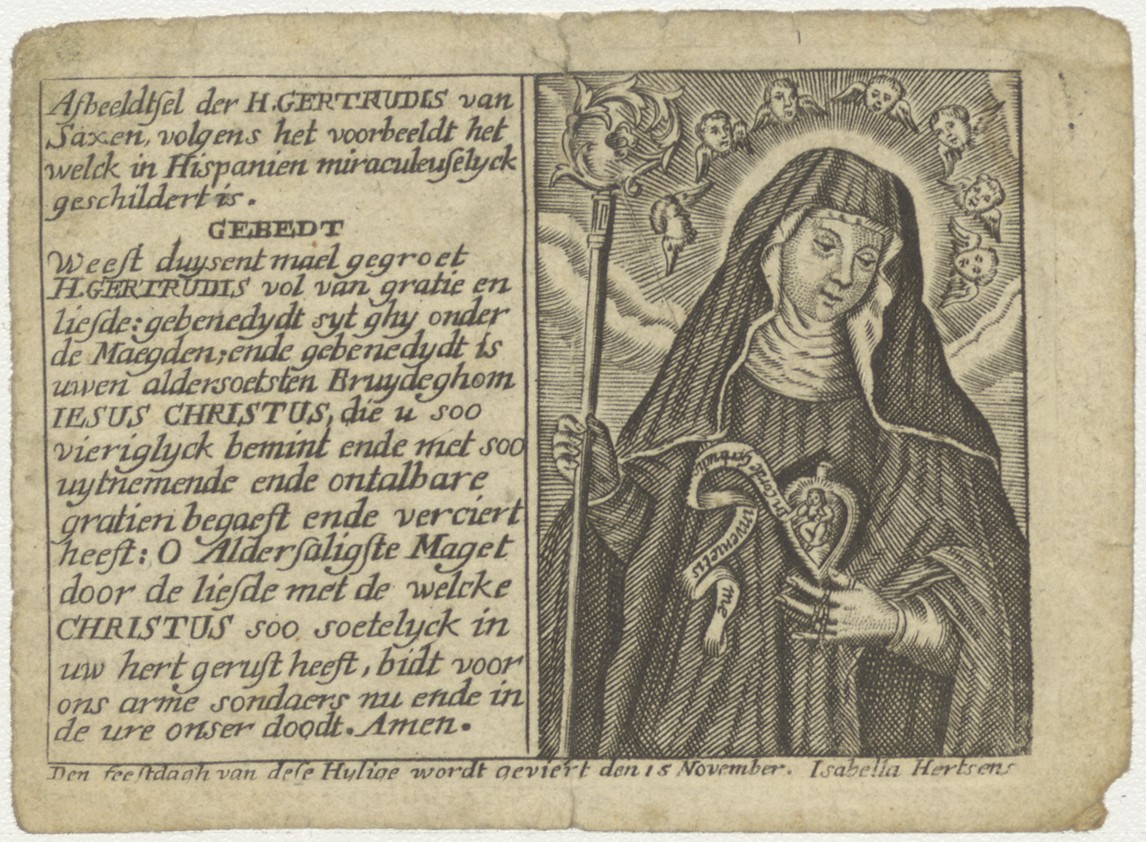 Afbeeldtſel der H.GERTRUDIS van
Saxen, volgens het voorbeeldt het
welck in Hispanien miraculeuſelyck
geschildert is.
GEBEDT
Weeſt duysent mael gegroet
H.GERTRUDIS vol van gratie en
liefde: gebenedydt syt ghy onder
de Maegden; ende gebenedydt is
uwen aldersoetsten Bruydeghom
IESUS CHRISTUS, die u soo
vieriglyck bemint ende met soo
uytnemende ende ontalbare
gratien begaeft ende verciert
heeft: O Alderſaligſte Maget
door de liefde met de welcke
CHRISTUS soo soetelyck in
uw hert geruſt heeft, bidt voor
ons arme sondaers nu ende in
de ure onser doodt. Amen.
in corde Gertrudis
invenietis
me
Den feeſtdagh van deſe Hylige wordt geviert den 15 November. Isabella Hertsens